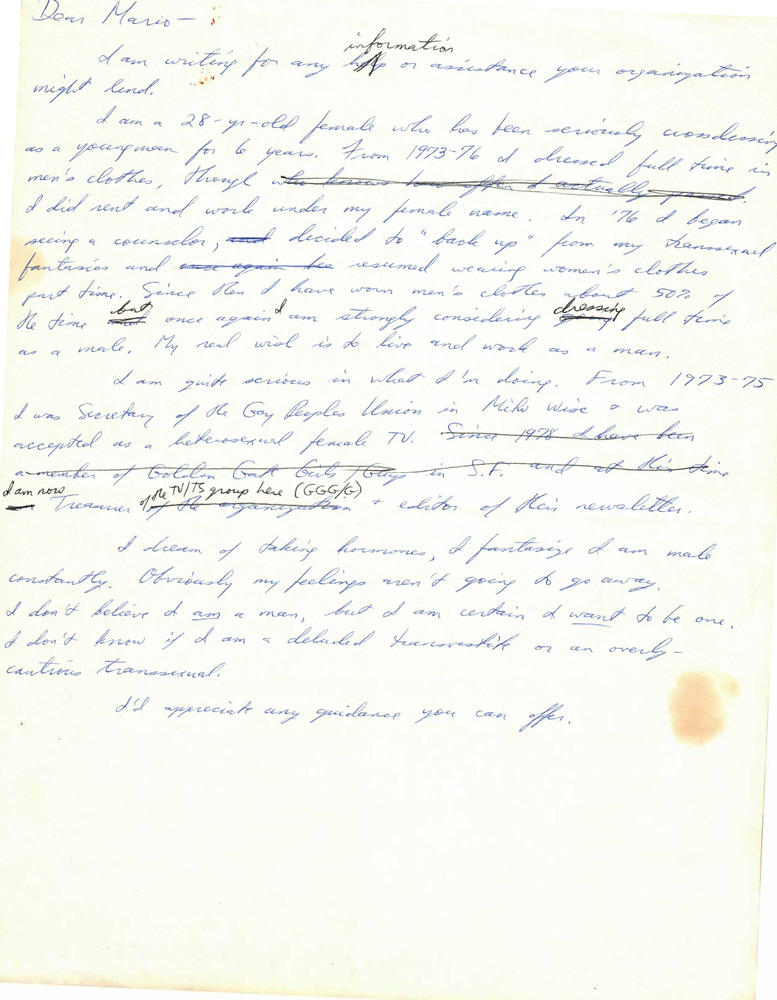 Dear Mario—
information
I am writing for any help or assistance your organization
might lend.
I am a 28-yr-old female who has been seriously crossdressing
as a young man for 6 years. From 1973-76 I dressed full time in
men's clothes, though who knows how often I actually passed.
I did rent and work under my female name. In '76 I began
seeing a counselor, and decided to "back up" from my transsexual
fantasies and once again resumed wearing women's clothes
part time. Since then I have worn men's clothes about 50% of
but dressing
the time once again I am strongly considering full time
as a male. My real wish is to live and work as a man.
I am quite serious in what I'm doing. From 1973-75
I was Secretary of the Gay Peoples Union in Milw Wisc & was
accepted as a heterosexual female TV. Since 1978 I have been
a member of Golden Gate Girls/Guys in S.F. and at this time
I am now of the TV/TS group here (GGG/G)
Treasurer of the organization & editor of their newsletter.
I dream of taking hormones, I fantasize I am male
constantly. Obviously my feelings aren't going to go away.
I don't believe I am a man, but I am certain I want to be one.
I don't know if I am a deluded transvestite or an overly-
cautious transsexual.
I'd appreciate any guidance you can offer.